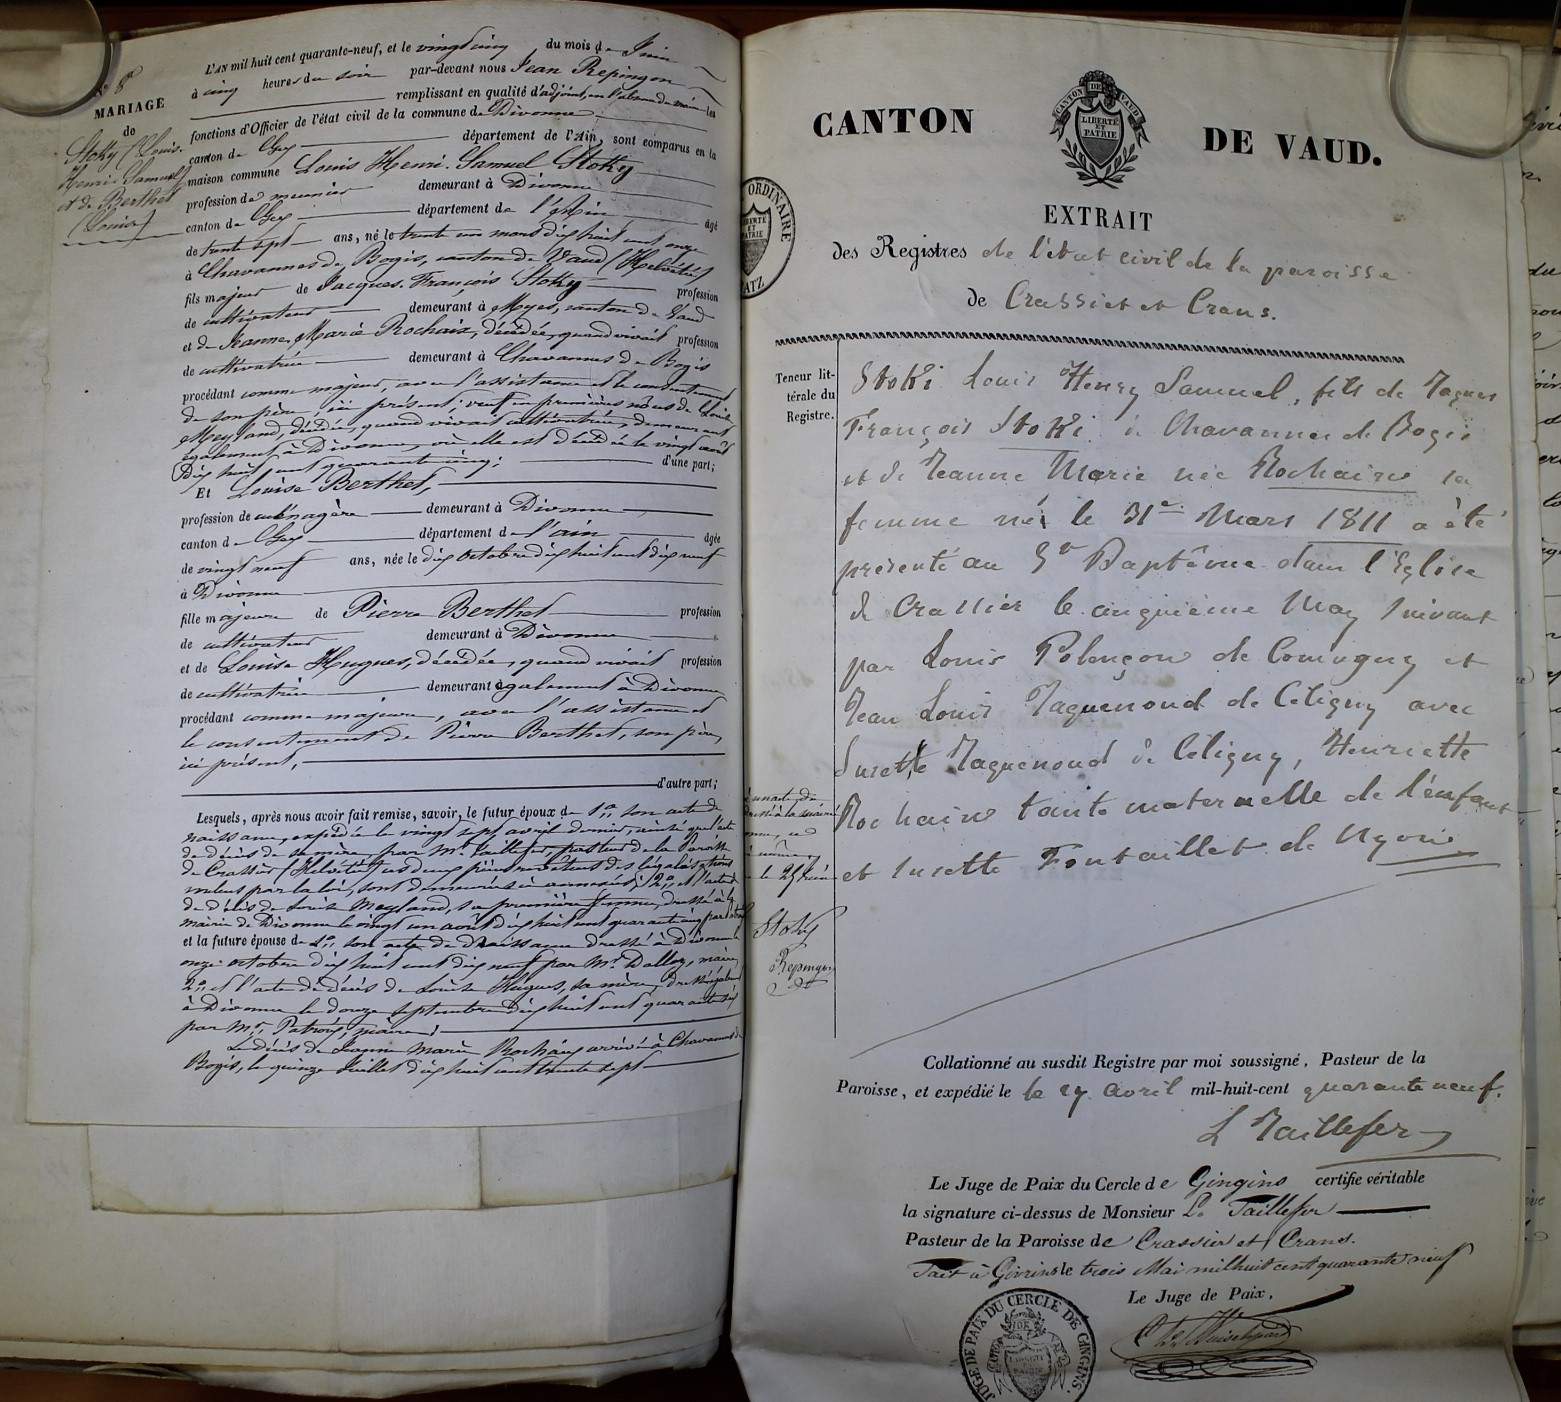 N° 8
MARIAGE
de
Stoky (Louis-
Henri-Samuel)
et de Berthet
(Louise)
L'AN mil huit cent quarante-neuf, et le vingt cinq du mois de Juin
à cinq heures du soir par-devant nous Jean Repingon
remplissant en qualité d'adjoint, en l'absence du maire les
fonctions d'Officier de l'état civil de la commune de Divonne
canton de Gex département de l'Ain, sont comparus en la
maison commune Louis Henri-Samuel Stoky
profession de meunier demeurant à Divonne
canton de Gex département de l'Ain âgé
de trente sept ans, né le trente un mars dix huit cent onze
à Chavannes de Bogis, canton de Vaud (Helvétie)
fils majeur de Jacques-François Stoky profession
de cultivateur demeurant à Myes, canton de Vaud
et de Jeanne Marie Rochaix, décédée, quand vivait profession
de cultivatrice demeurant à Chavannes de Bogis
procédant comme majeur, avec l'assistance et le consentement
de son père, ici présent; veuf en premières nôces de Louise
Meyland, décédée, quand vivait cultivatrice, demeurant
également à Divonne, où elle est décédée le vingt août
dix huit cent quarante cinq; d'une part;
Et Louise Berthet,
profession de ménagère demeurant à Divonne
canton de Gex département de l'ain âgée
de vingt neuf ans, née le dix octobre dix huit cent dix neuf
à Divonne
fille majeure de Pierre Berthet profession
de cultivateur demeurant à Divonne
et de Louise Hugues, décédée, quand vivait profession
de cultivatrice demeurant également à Divonne
procédant comme majeure, avec l'assistance et
le consentement de Pierre Berthet, son père,
ici présent,
d'autre part;
Lesquels, après nous avoir fait remise, savoir, le futur époux de 1° son acte de
naissance, expédié le vingt sept avril dernier, ainsi que l'acte
de décès de sa mère, par Mr Taillefer, pasteur de la Paroisse
de Crassier (Helvétie) ces deux pièces revêtues des légalisations
voulues par la loi, sont demeurées ci annexées; 2° et l'acte
de décès de Louise Meyland, sa première femme, dressé à la
mairie de Divonne le vingt un août dix huit cent quarante cinq
et la future épouse de 1° son acte de naissance dressé à Divonne le
onze octobre dix huit cent dix neuf par Mr Dalloz, maire,
2° et l'acte de décès de Louise Hugues, sa mère, dressé également
à Divonne le douze septembre dix huit cent quarante six
par Mr, maire;
Le décès de Jeanne Marie Rochaix arrivé à Chavannes de
Bogis, le quinze Juillet dix huit cent trente sept
le 25 Juin
Stoky
Repingon
CANTON DE VAUD.
CANTON DE VAUD
LIBERTÉ
ET
PATRIE
ORDINAIRE
BATZ
EXTRAIT
des Registres de l'état civil de la paroisse
de Crassier et Crans.
Teneur lit-
térale du
Registre.
Stoki Louis Henry Samuel, fils de Jaques
François Stoki de Chavannes de Bogis
et de Jeanne Marie née Rochaix sa
femme né le 31e Mars 1811 a été
présenté au St Baptême dans l'Eglise
de Crassier le cinquième May suivant
par Louis Polençon de Comugny et
Jean Louis Jaquenoud de Céligny avec
Susette Jaquenoud de Céligny, Henriette
Rochaix tante maternelle de l'enfant
et Susette Fontaillet de Nyon.
Collationné au susdit Registre par moi soussigné, Pasteur de la
Paroisse, et expédié le le 27 avril mil-huit-cent quarante neuf.
L Taillefer
Le Juge de Paix du Cercle de Gingins certifie véritable
la signature ci-dessus de Monsieur L. Taillefer
Pasteur de la Paroisse de Crassier et Crans.
Fait à Givrins le trois Mai mil huit cent quarante neuf
Le Juge de Paix,
JUGE DE PAIX DU CERCLE DE GINGINS.